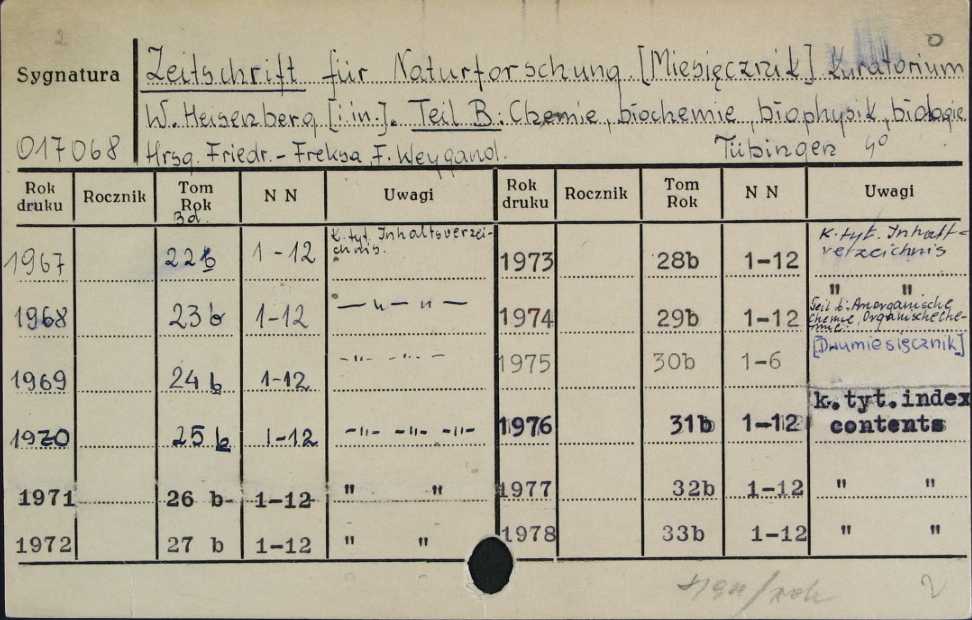 2
Sygnatura
Zeitschrift für Naturforschung [Miesięcznik] Kuratorium
W. Heisenberg [i in.]. Teil B: Chemie, biochemie, biophysik, biologie
017068 Hrsg. Friedr.-Freksa F. Weygand. Tübingen 4°
Rok druku Rocznik Tom Rok Bd. N N Uwagi Rok druku Rocznik Tom Rok N N Uwagi
1967 22b 1-12 K. tyt. Inhaltsverzeichnis. 1973 28b 1-12 K. tyt. Inhaltverzeichnis
1968 23b 1-12 — " — " — 1974 29b 1-12 " " Teil b: Anorganische Chemie, Organische Chemie.
1969 24b 1-12 -"- -"- 1975 30b 1-6 [Dwumiesięcznik]
1970 25b 1-12 -"- -"- -"- 1976 31b 1-12 k.tyt.index contents
1971 26 b 1-12 " " 1977 32b 1-12 " "
1972 27 b 1-12 " " 1978 33b 1-12 " "